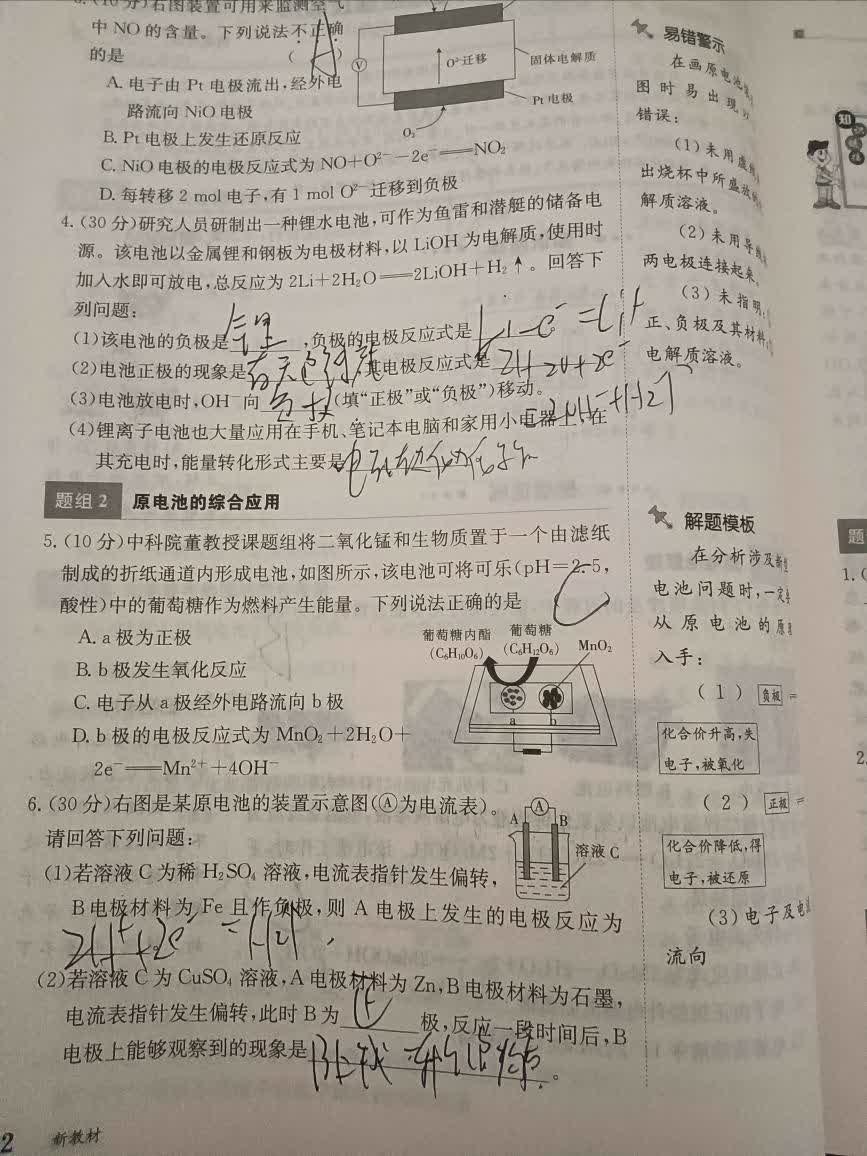 3.(10分)右图装置可用来监测空气
中NO的含量。下列说法不正确
的是 (A)
A.电子由Pt电极流出,经外电
路流向NiO电极
B.Pt电极上发生还原反应
C.NiO电极的电极反应式为NO+O²⁻-2e⁻══NO₂
D.每转移2 mol电子,有1 mol O²⁻迁移到负极
V
O²⁻迁移
固体电解质
Pt电极
O₂
4.(30分)研究人员研制出一种锂水电池,可作为鱼雷和潜艇的储备电
源。该电池以金属锂和钢板为电极材料,以LiOH为电解质,使用时
加入水即可放电,总反应为2Li+2H₂O══2LiOH+H₂↑。回答下
列问题:
(1)该电池的负极是锂,负极的电极反应式是Li-e⁻=Li⁺
(2)电池正极的现象是有无色,其电极反应式是2H₂O+2e⁻
=2OH⁻+H₂↑
(3)电池放电时,OH⁻向负极(填“正极”或“负极”)移动。
(4)锂离子电池也大量应用在手机、笔记本电脑和家用小电器上,在
其充电时,能量转化形式主要是电
题组2 原电池的综合应用
5.(10分)中科院董教授课题组将二氧化锰和生物质置于一个由滤纸
制成的折纸通道内形成电池,如图所示,该电池可将可乐(pH=2.5,
酸性)中的葡萄糖作为燃料产生能量。下列说法正确的是 C
A.a极为正极
B.b极发生氧化反应
C.电子从a极经外电路流向b极
D.b极的电极反应式为MnO₂+2H₂O+
2e⁻══Mn²⁺+4OH⁻
葡萄糖内酯
(C₆H₁₀O₆)
葡萄糖
(C₆H₁₂O₆)
MnO₂
a b
6.(30分)右图是某原电池的装置示意图(Ⓐ为电流表)。
请回答下列问题:
(1)若溶液C为稀H₂SO₄溶液,电流表指针发生偏转,
B电极材料为Fe且作负极,则A电极上发生的电极反应为
2H⁺+2e⁻=H₂↑。
(2)若溶液C为CuSO₄溶液,A电极材料为Zn,B电极材料为石墨,
电流表指针发生偏转,此时B为正极,反应一段时间后,B
电极上能够观察到的现象是。
A
A B
溶液C
2 新教材
易错警示
在画原电池
图时易出现
错误:
(1)未用虚线
出烧杯中所盛放
解质溶液。
(2)未用导线
两电极连接起来。
(3)未指明:
正、负极及其材料,
电解质溶液。
解题模板
在分析涉及新型
电池问题时,一定
从原电池的原
入手:
(1)负极=
化合价升高,失
电子,被氧化
(2)正极=
化合价降低,得
电子,被还原
(3)电子及电
流向
知
题
1.(
2.